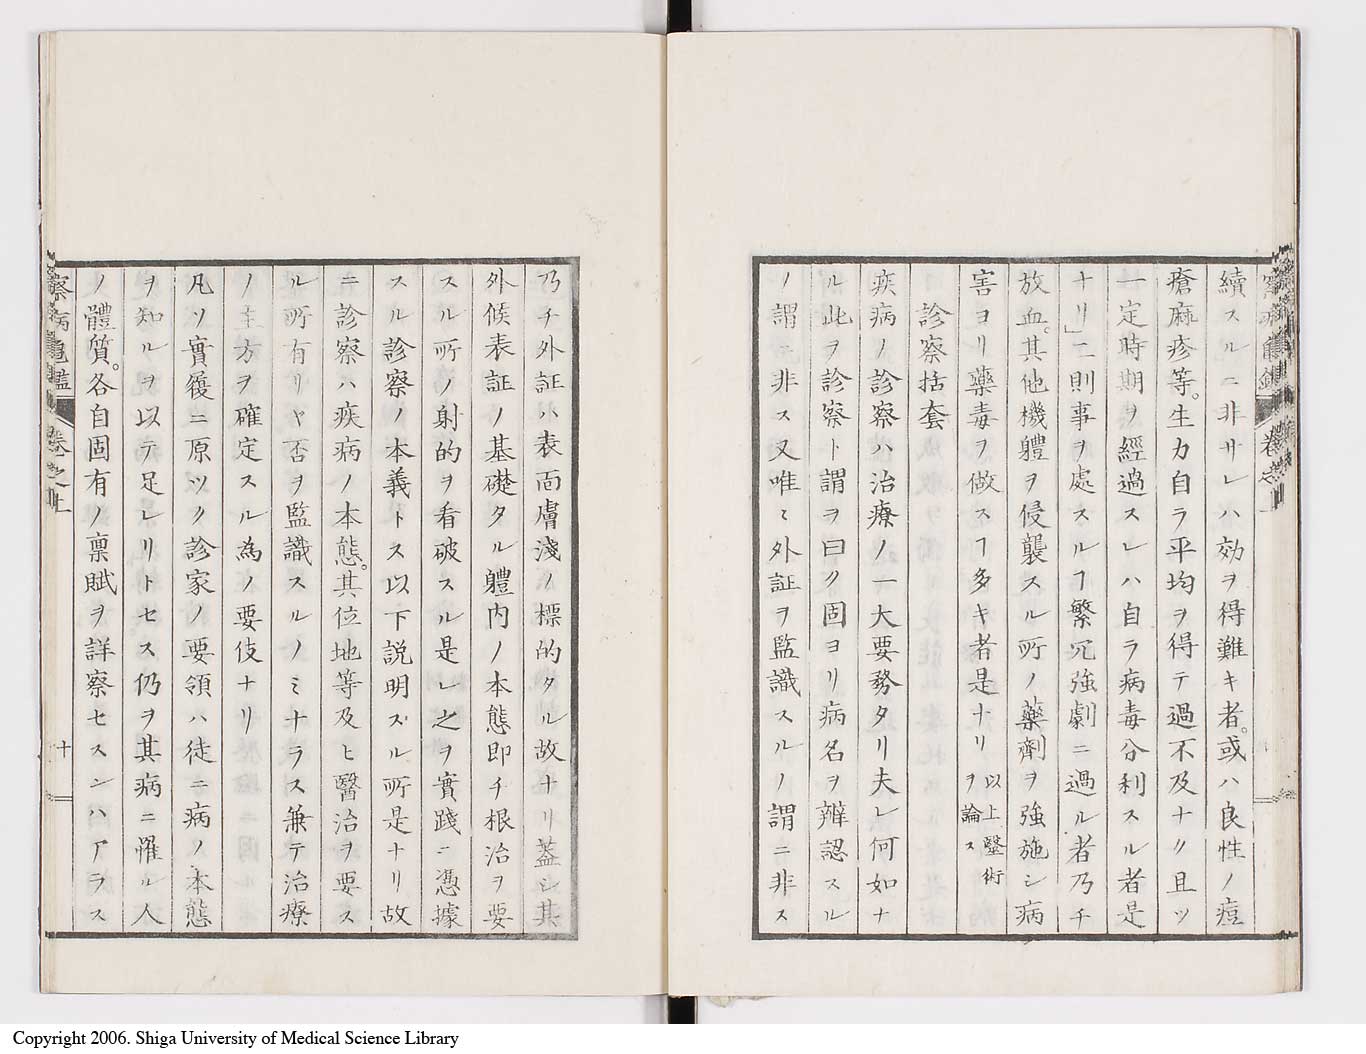 續スルニ非サレハ効ヲ得難キ者。或ハ良性ノ痘
瘡麻疹等。生力自ラ平均ヲ得テ過不及ナク且ツ
一定時期ヲ經過スレハ自ラ病毒分利スル者是
ナリ」二則事ヲ處スルヿ繁冗強劇ニ過ル者乃チ
放血。其他機體ヲ侵襲スル所ノ藥劑ヲ強施シ病
害ヨリ藥毒ヲ做スヿ多キ者是ナリ以上毉術ヲ論ス
診察括套
疾病ノ診察ハ治療ノ一大要務タリ夫レ何如ナ
ル此ヲ診察ト謂ヲ曰ク固ヨリ病名ヲ辨認スル
ノ謂ニ非ス又唯ミ外証ヲ監識スルノ謂ニ非ス
乃チ外証ハ表面膚淺ノ標的タル故ナリ蓋シ其
外候表証ノ基礎タル軆内ノ本態即チ根治ヲ要
スル所ノ射的ヲ看破スル是レ之ヲ實踐ニ憑據
スル診察ノ本義トス以下説明スル所是ナリ故
ニ診察ハ疾病ノ本態。其位地等及ヒ醫治ヲ要ス
ル所有リヤ否ヲ監識スルノミナラス兼テ治療
ノ主方ヲ確定スル為ノ要伎ナリ
凡ソ實履ニ原ツク診家ノ要領ハ徒ニ病ノ本態
ヲ知ルヲ以テ足レリトセス仍ヲ其病ニ罹ル人
ノ體質。各自固有ノ禀賦ヲ詳察セスンハアラス
察病亀鑑
卷之上
十
Copyright 2006. Shiga University of Medical Science Library